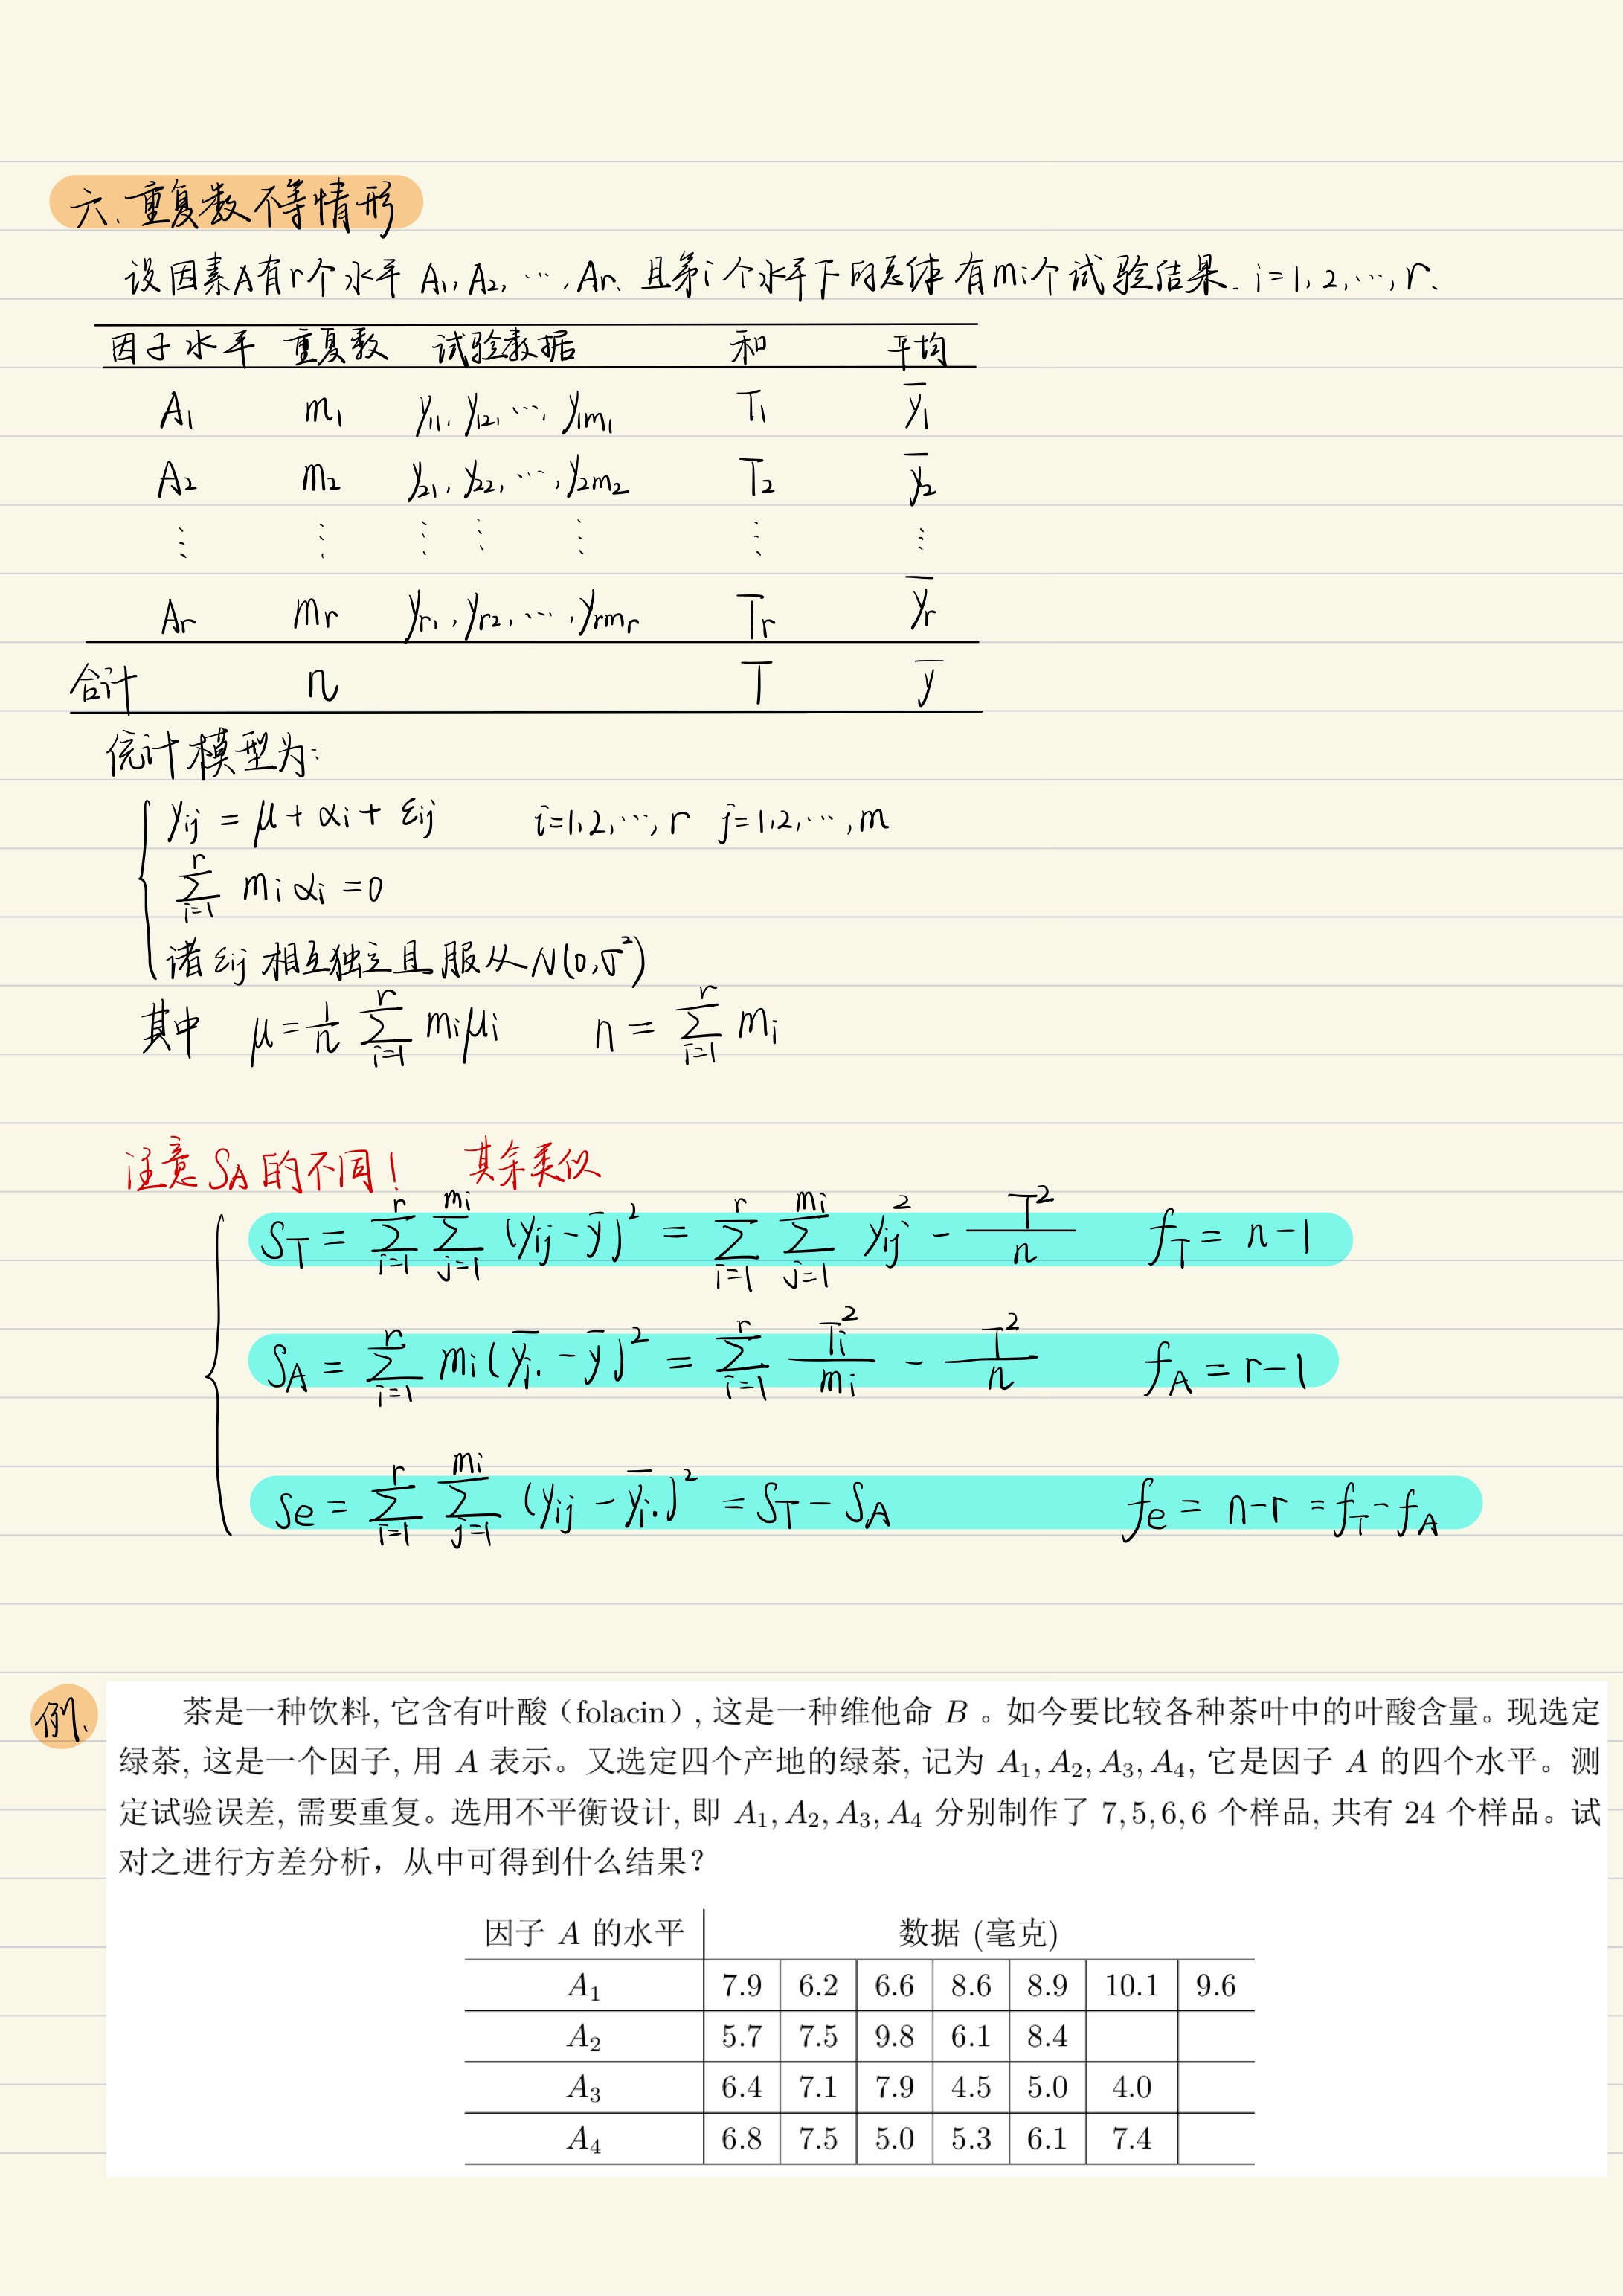 六、重复数不等情形
设因素A有r个水平 A₁, A₂, ⋯, Ar. 且第i个水平下的总体有mi个试验结果. i=1, 2, ⋯, r.
因子水平 重复数 试验数据 和 平均
A₁ m₁ y₁₁, y₁₂, ⋯, y₁m₁ T₁ ȳ₁
A₂ m₂ y₂₁, y₂₂, ⋯, y₂m₂ T₂ ȳ₂
⋮ ⋮ ⋮ ⋮ ⋮ ⋮ ⋮
Ar mr yr₁, yr₂, ⋯, yrmr Tr ȳr
合计 n T ȳ
统计模型为:
yij = μ + αi + εij i=1,2,⋯, r j=1,2,⋯, m
∑_{i=1}^{r} mi αi = 0
诸 εij 相互独立且服从 N(0,σ²)
其中 μ = 1/n ∑_{i=1}^{r} mi μi n = ∑_{i=1}^{r} mi
注意 SA 的不同! 其余类似
S_T = ∑_{i=1}^{r} ∑_{j=1}^{mi} (yij - ȳ)² = ∑_{i=1}^{r} ∑_{j=1}^{mi} yij² - T²/n f_T = n-1
S_A = ∑_{i=1}^{r} mi (ȳi. - ȳ)² = ∑_{i=1}^{r} Ti²/mi - T²/n f_A = r-1
Se = ∑_{i=1}^{r} ∑_{j=1}^{mi} (yij - ȳi.)² = S_T - S_A fe = n-r = f_T - f_A
例、
茶是一种饮料, 它含有叶酸（folacin）, 这是一种维他命 B 。如今要比较各种茶叶中的叶酸含量。现选定
绿茶, 这是一个因子, 用 A 表示。又选定四个产地的绿茶, 记为 A₁, A₂, A₃, A₄, 它是因子 A 的四个水平。测
定试验误差, 需要重复。选用不平衡设计, 即 A₁, A₂, A₃, A₄ 分别制作了 7,5,6,6 个样品, 共有 24 个样品。试
对之进行方差分析，从中可得到什么结果？
因子 A 的水平 数据 (毫克)
A₁ 7.9 6.2 6.6 8.6 8.9 10.1 9.6
A₂ 5.7 7.5 9.8 6.1 8.4
A₃ 6.4 7.1 7.9 4.5 5.0 4.0
A₄ 6.8 7.5 5.0 5.3 6.1 7.4